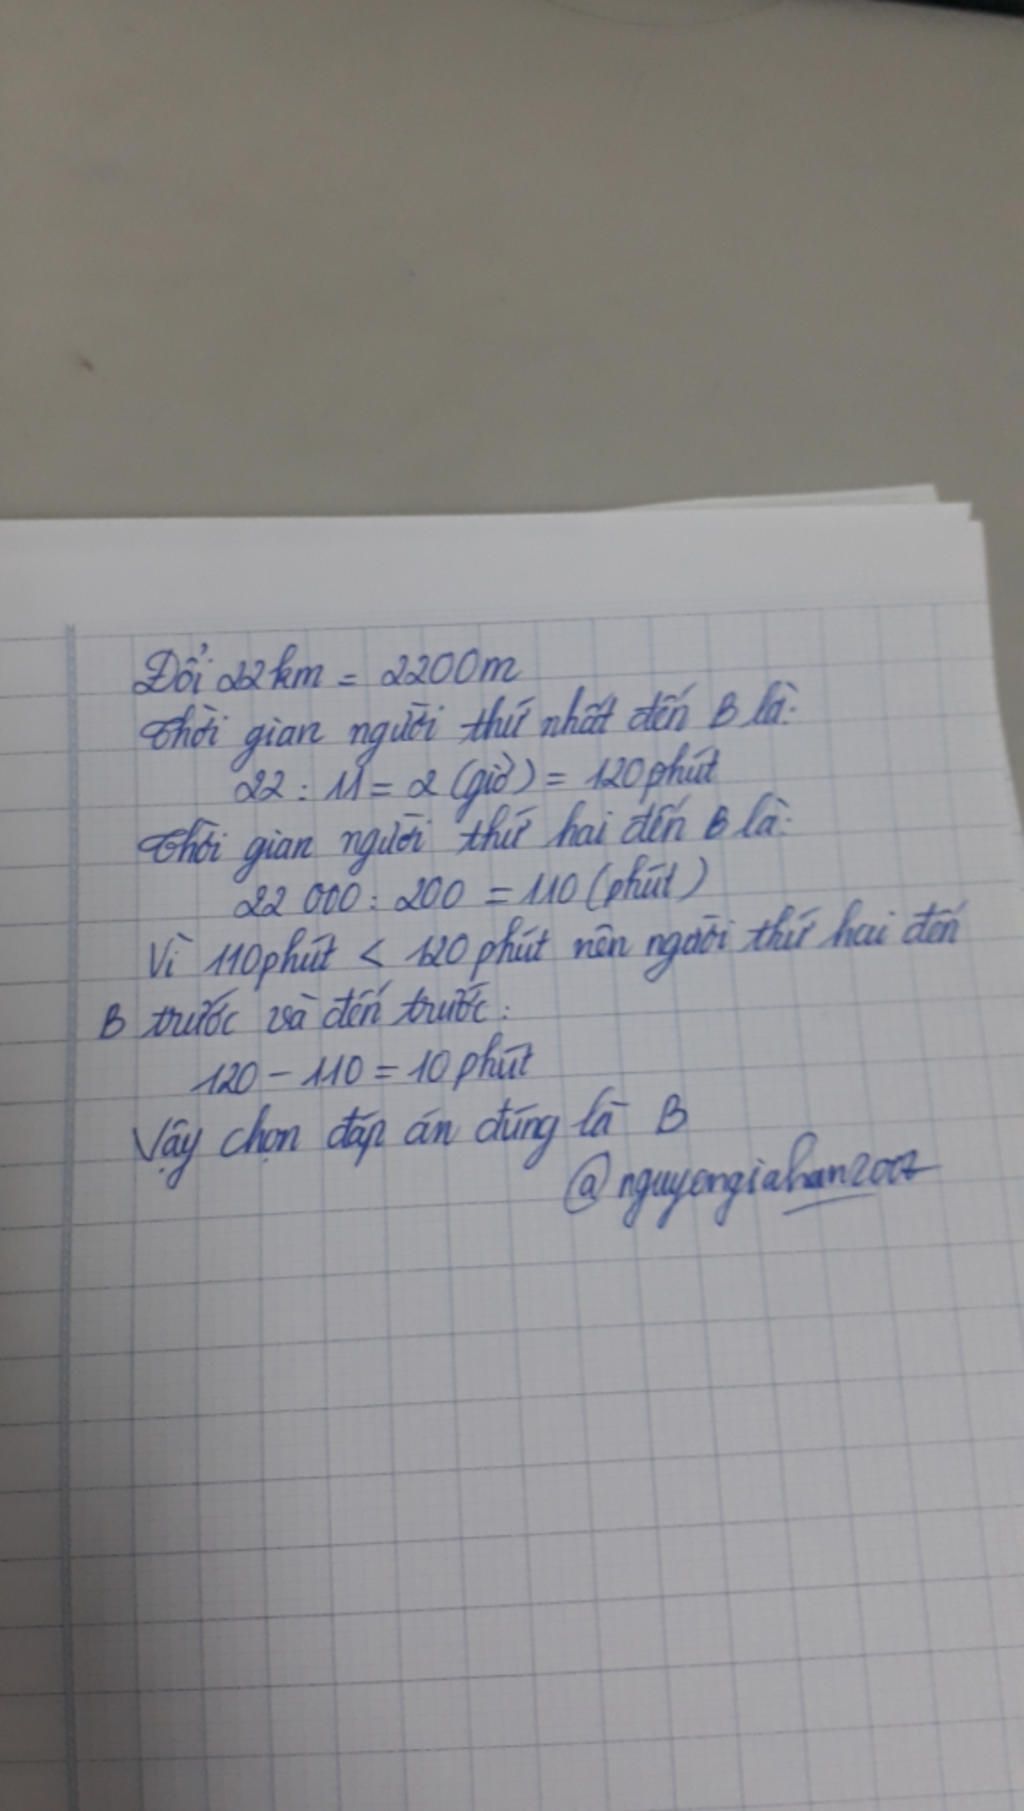 Đổi 22km = 2200m
Thời gian người thứ nhất đến B là:
22 : 11 = 2 (giờ) = 120 phút
Thời gian người thứ hai đến B là:
22 000 : 200 = 110 (phút)
Vì 110 phút < 120 phút nên người thứ hai đến
B trước và đến trước:
120 - 110 = 10 phút
Vậy chọn đáp án đúng là B
@nguyengiahan2007